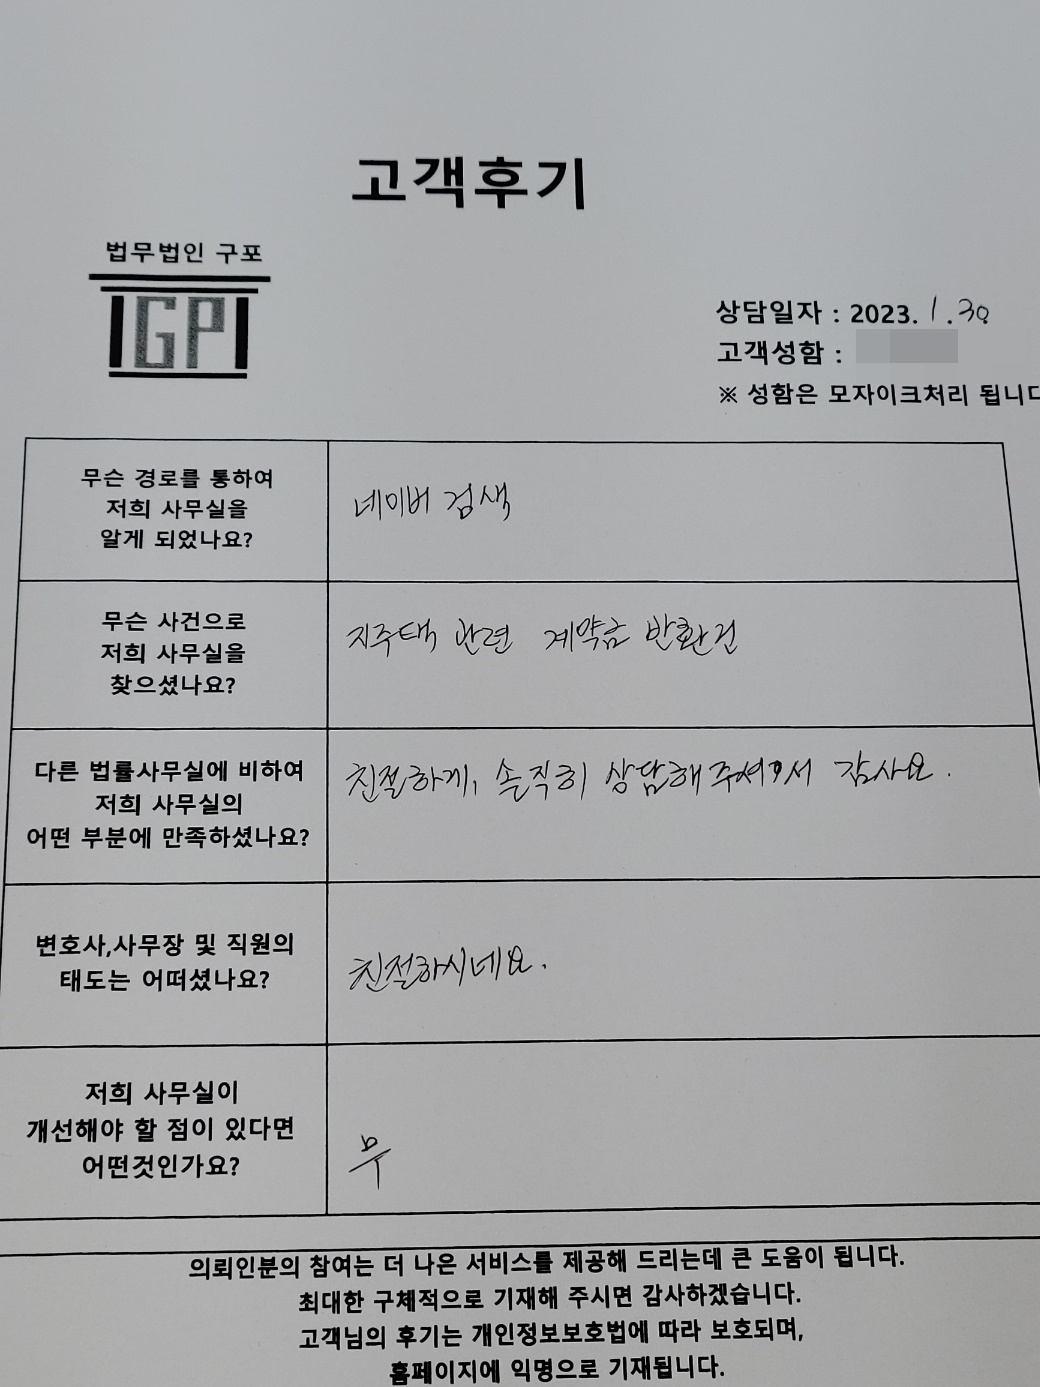 고객후기
법무법인 구포
GP
상담일자 : 2023. 1. 30
고객성함 :
※ 성함은 모자이크처리 됩니다
무슨 경로를 통하여
저희 사무실을
알게 되었나요?
네이버 검색
무슨 사건으로
저희 사무실을
찾으셨나요?
지주택 관련 계약금 반환건
다른 법률사무실에 비하여
저희 사무실의
어떤 부분에 만족하셨나요?
친절하게, 솔직히 상담해주셔서 감사요.
변호사,사무장 및 직원의
태도는 어떠셨나요?
친절하시네요.
저희 사무실이
개선해야 할 점이 있다면
어떤것인가요?
무
의뢰인분의 참여는 더 나은 서비스를 제공해 드리는데 큰 도움이 됩니다.
최대한 구체적으로 기재해 주시면 감사하겠습니다.
고객님의 후기는 개인정보보호법에 따라 보호되며,
홈페이지에 익명으로 기재됩니다.